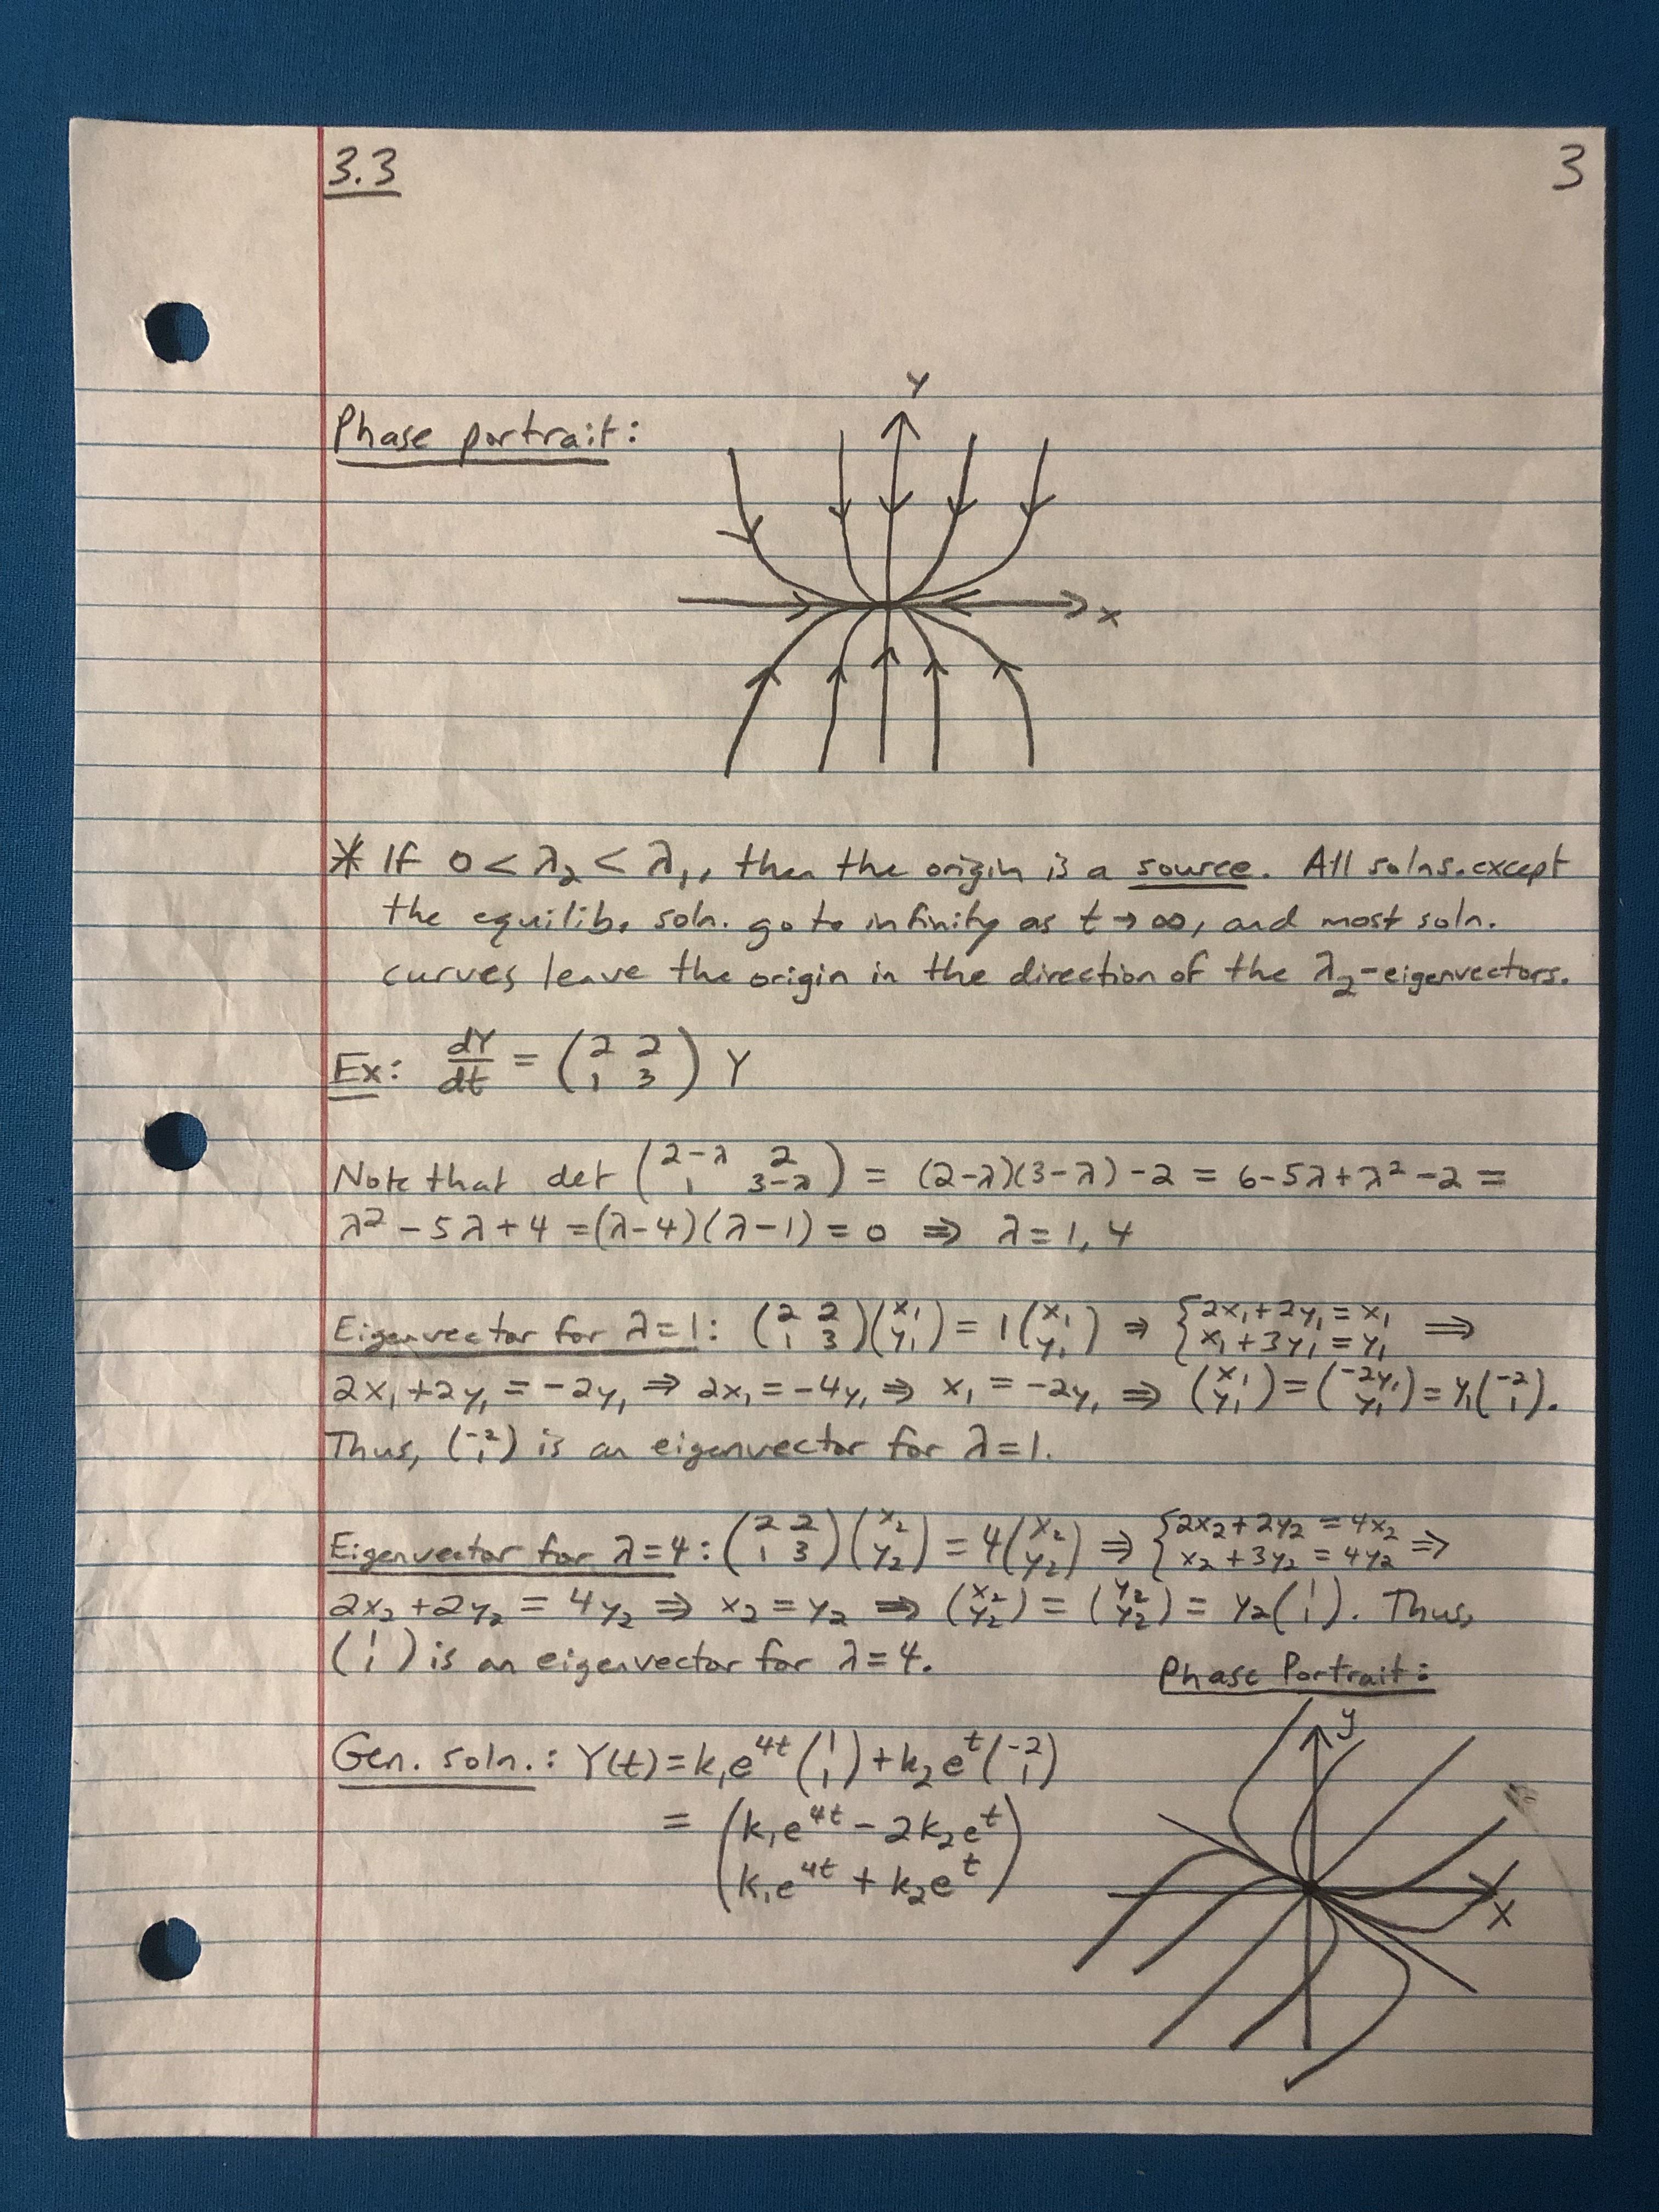 3.3 3
Phase portrait:
Y
x
* If 0 < λ₂ < λ₁, then the origin is a source. All solns. except
the equilib. soln. go to infinity as t → ∞, and most soln.
curves leave the origin in the direction of the λ₂-eigenvectors.
Ex: dY/dt = (2 2; 1 3) Y
Note that det (2-λ 2; 1 3-λ) = (2-λ)(3-λ) - 2 = 6 - 5λ + λ² - 2 =
λ² - 5λ + 4 = (λ-4)(λ-1) = 0 ⇒ λ = 1, 4
Eigenvector for λ=1: (2 2; 1 3)(x₁; y₁) = 1(x₁; y₁) ⇒ {2x₁ + 2y₁ = x₁; x₁ + 3y₁ = y₁ ⇒
2x₁ + 2y₁ = -2y₁ ⇒ 2x₁ = -4y₁ ⇒ x₁ = -2y₁ ⇒ (x₁; y₁) = (-2y₁; y₁) = y₁(-2; 1).
Thus, (-2; 1) is an eigenvector for λ=1.
Eigenvector for λ=4: (2 2; 1 3)(x₂; y₂) = 4(x₂; y₂) ⇒ {2x₂ + 2y₂ = 4x₂; x₂ + 3y₂ = 4y₂ ⇒
2x₂ + 2y₂ = 4y₂ ⇒ x₂ = y₂ ⇒ (x₂; y₂) = (y₂; y₂) = y₂(1; 1). Thus,
(1; 1) is an eigenvector for λ=4.
Phase Portrait:
Gen. soln.: Y(t) = k₁e^{4t}(1; 1) + k₂e^{t}(-2; 1)
= (k₁e^{4t} - 2k₂e^{t}; k₁e^{4t} + k₂e^{t})
y
x